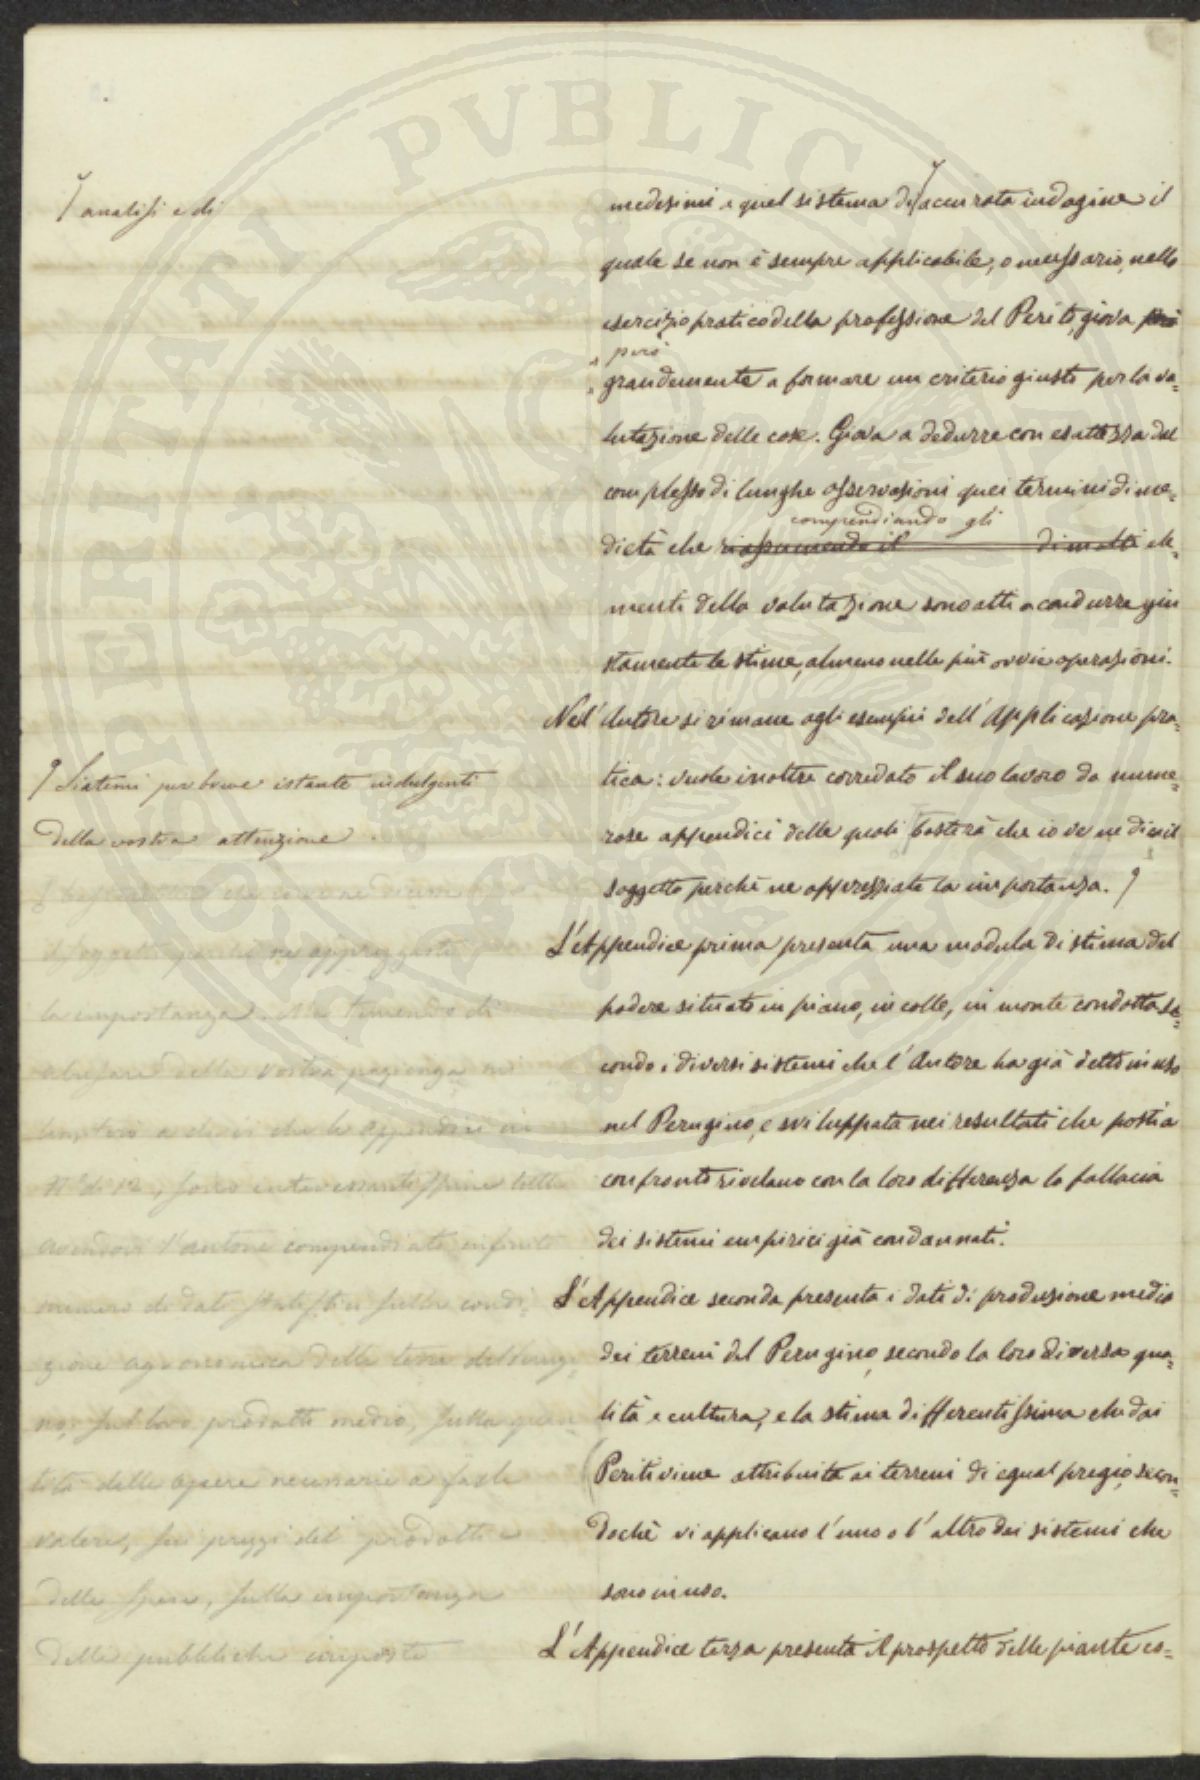 analisi e di
medesimi e quel sistema di accurata indagine il
quale se non è sempre applicabile, o necessario, nello
esercizio pratico della professione del Perito, giova però
però
grandemente a formare un criterio giusto per la va=
lutazione delle cose. Giova a dedurre con esattezza dal
complesso di lunghe osservazioni quei termini di me=
compendiando gli
dietà che riassumendo il di molti ele=
menti della valutazione sono atti a condurre giu
stamente le stime, almeno nelle più ovvie operazioni.
Nè l'Autore si rimane agli esempii dell'Applicazione pra=
tica: vuole inoltre corredato il suo lavoro da nume=
rose appendici delle quali basterà che io ve ne dica il
soggetto perchè ne apprezziate la importanza.
Siatemi per breve istante indulgenti
della vostra attenzione.
L'Appendice prima presenta una modula di stima del
podere situato in piano, in colle, in monte condotta se=
condo i diversi sistemi che l'Autore ha già detto in uso
nel Perugino, e sviluppata nei resultati che posti a
confronto rivelano con la loro differenza la fallacia
dei sistemi empirici già condannati.
L'Appendice seconda presenta i dati di produzione media
dei terreni del Perugino, secondo la loro diversa qua=
lità e cultura, e la stima differentissima che dai
Periti viene attribuita ai terreni di egual pregio, secon=
dochè vi applicano l'uno o l'altro dei sistemi che
sono in uso.
L'Appendice terza presenta il prospetto delle piante es=
soggetto perchè ne apprezziate
la importanza. Ma temendo di
abusare della vostra pazienza mi
limiterò a dirvi che le appendici in
N° di 12, sono interessantissime tutte
avendovi l'autore compendiato infinito
numero di dati statistici sulla condi=
zione agronomica delle terre del Perugi=
no, sul loro prodotto medio, sulla quan
tità delle opere necessarie a farle
valere, sui prezzi dei prodotti e
delle spese, sulla importanza
delle pubbliche imposte
PERITATI PVBLICAE